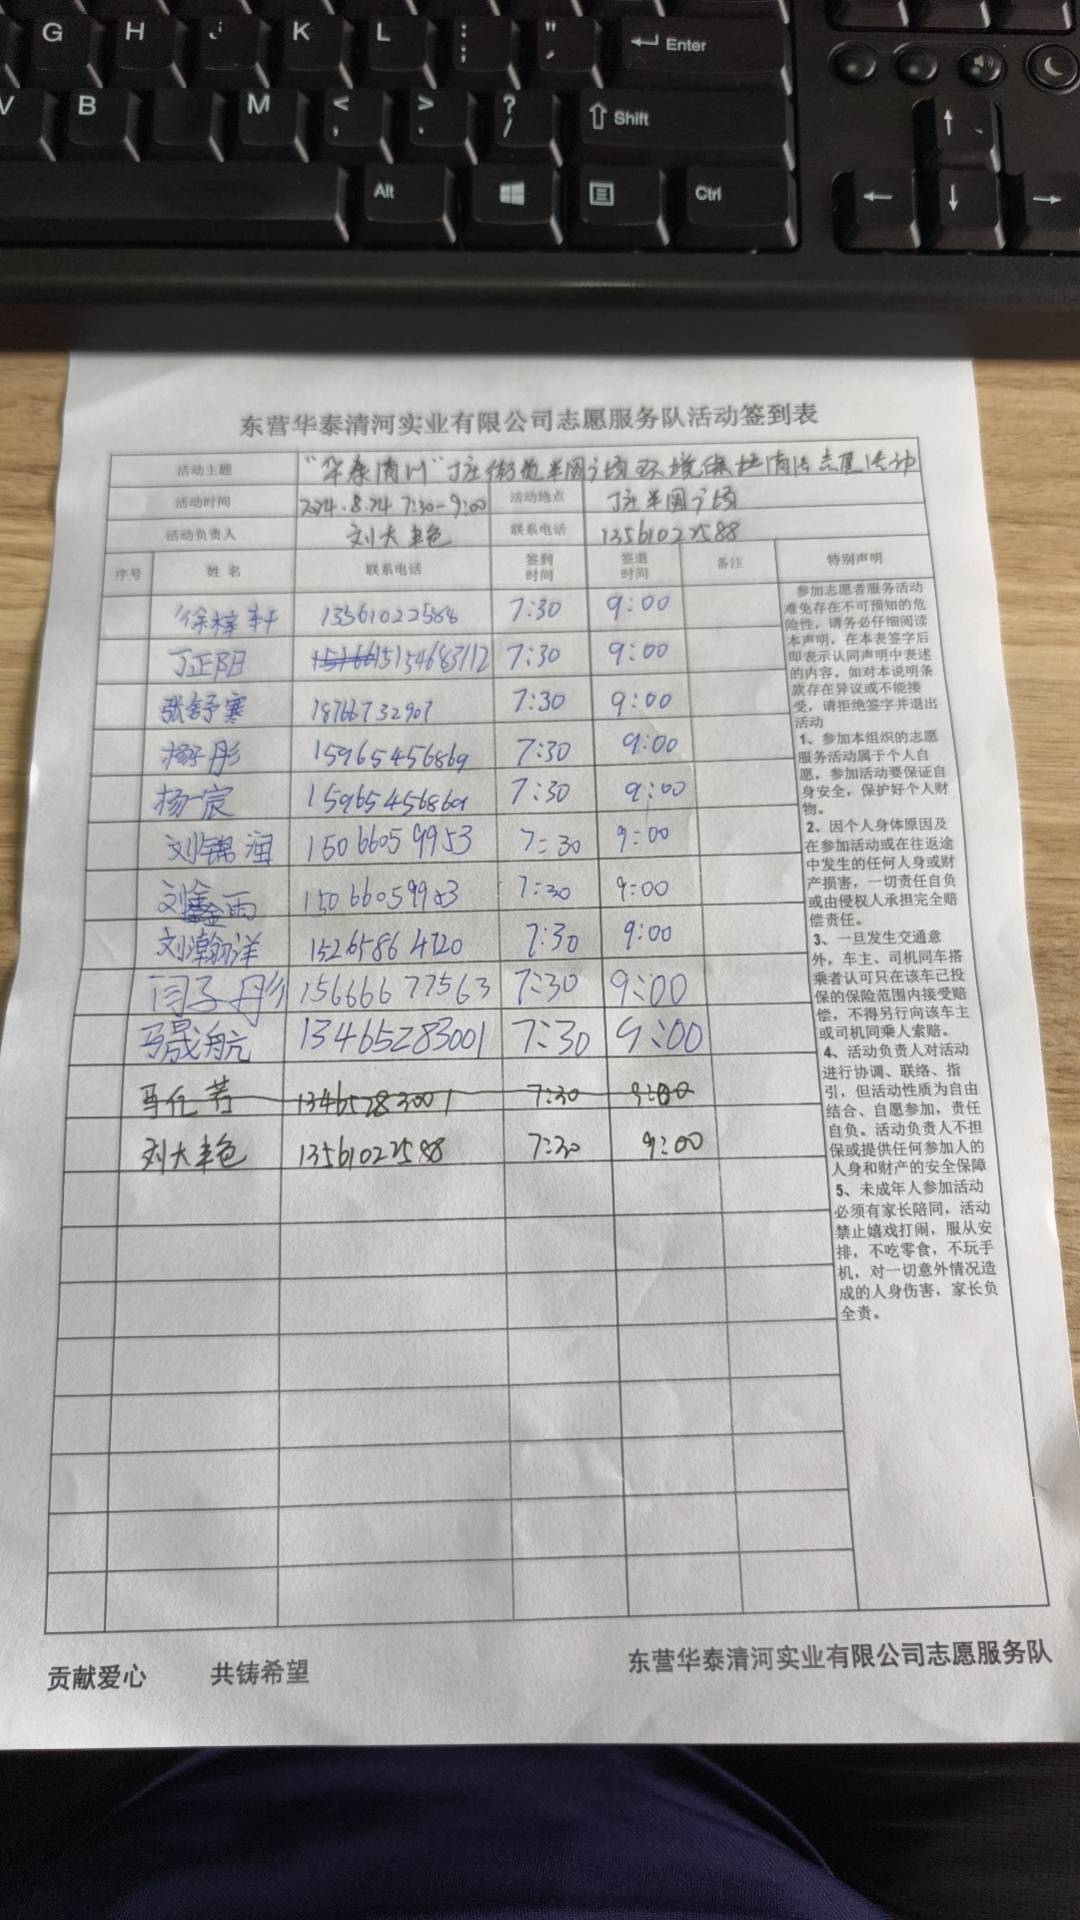 G H J K L : ; " ' Enter
V B M < , > . ? / Shift
Alt Ctrl
东营华泰清河实业有限公司志愿服务队活动签到表
活动主题 "华泰清河"丁庄街道半园广场环境保护清洁志愿活动
活动时间 2024.8.24 7:30-9:00 活动地点 丁庄半园广场
活动负责人 刘大 联系电话 13561022588
序号 姓名 联系电话 签到时间 签退时间 备注 特别声明
徐梓轩 13561022588 7:30 9:00
丁正阳 15154683112 7:30 9:00
张舒寒 18766732907 7:30 9:00
杨子彤 15965456869 7:30 9:00
杨一宸 15965456869 7:30 9:00
刘锦润 15066059953 7:30 9:00
刘鑫雨 15066059953 7:30 9:00
刘瀚洋 15265864720 7:30 9:00
闫子彤 15666677563 7:30 9:00
马晟航 13465283001 7:30 9:00
马仁芳 13465283001 7:30 9:00
刘大 13561022588 7:30 9:00
参加志愿者服务活动
难免存在不可预知的危
险性，请务必仔细阅读
本声明，在本表签字后
即表示认同声明中表述
的内容。如对本说明条
款存在异议或不能接
受，请拒绝签字并退出
活动
1、参加本组织的志愿
服务活动属于个人自
愿，参加活动要保证自
身安全，保护好个人财
物。
2、因个人身体原因及
在参加活动或在往返途
中发生的任何人身或财
产损害，一切责任自负
或由侵权人承担完全赔
偿责任。
3、一旦发生交通意
外，车主、司机同车搭
乘者认可只在该车已投
保的保险范围内接受赔
偿，不得另行向该车主
或司机同乘人索赔。
4、活动负责人对活动
进行协调、联络、指
引，但活动性质为自由
结合、自愿参加，责任
自负。活动负责人不担
保或提供任何参加人的
人身和财产的安全保障
5、未成年人参加活动
必须有家长陪同，活动
禁止嬉戏打闹，服从安
排，不吃零食，不玩手
机，对一切意外情况造
成的人身伤害，家长负
全责。
贡献爱心 共铸希望 东营华泰清河实业有限公司志愿服务队